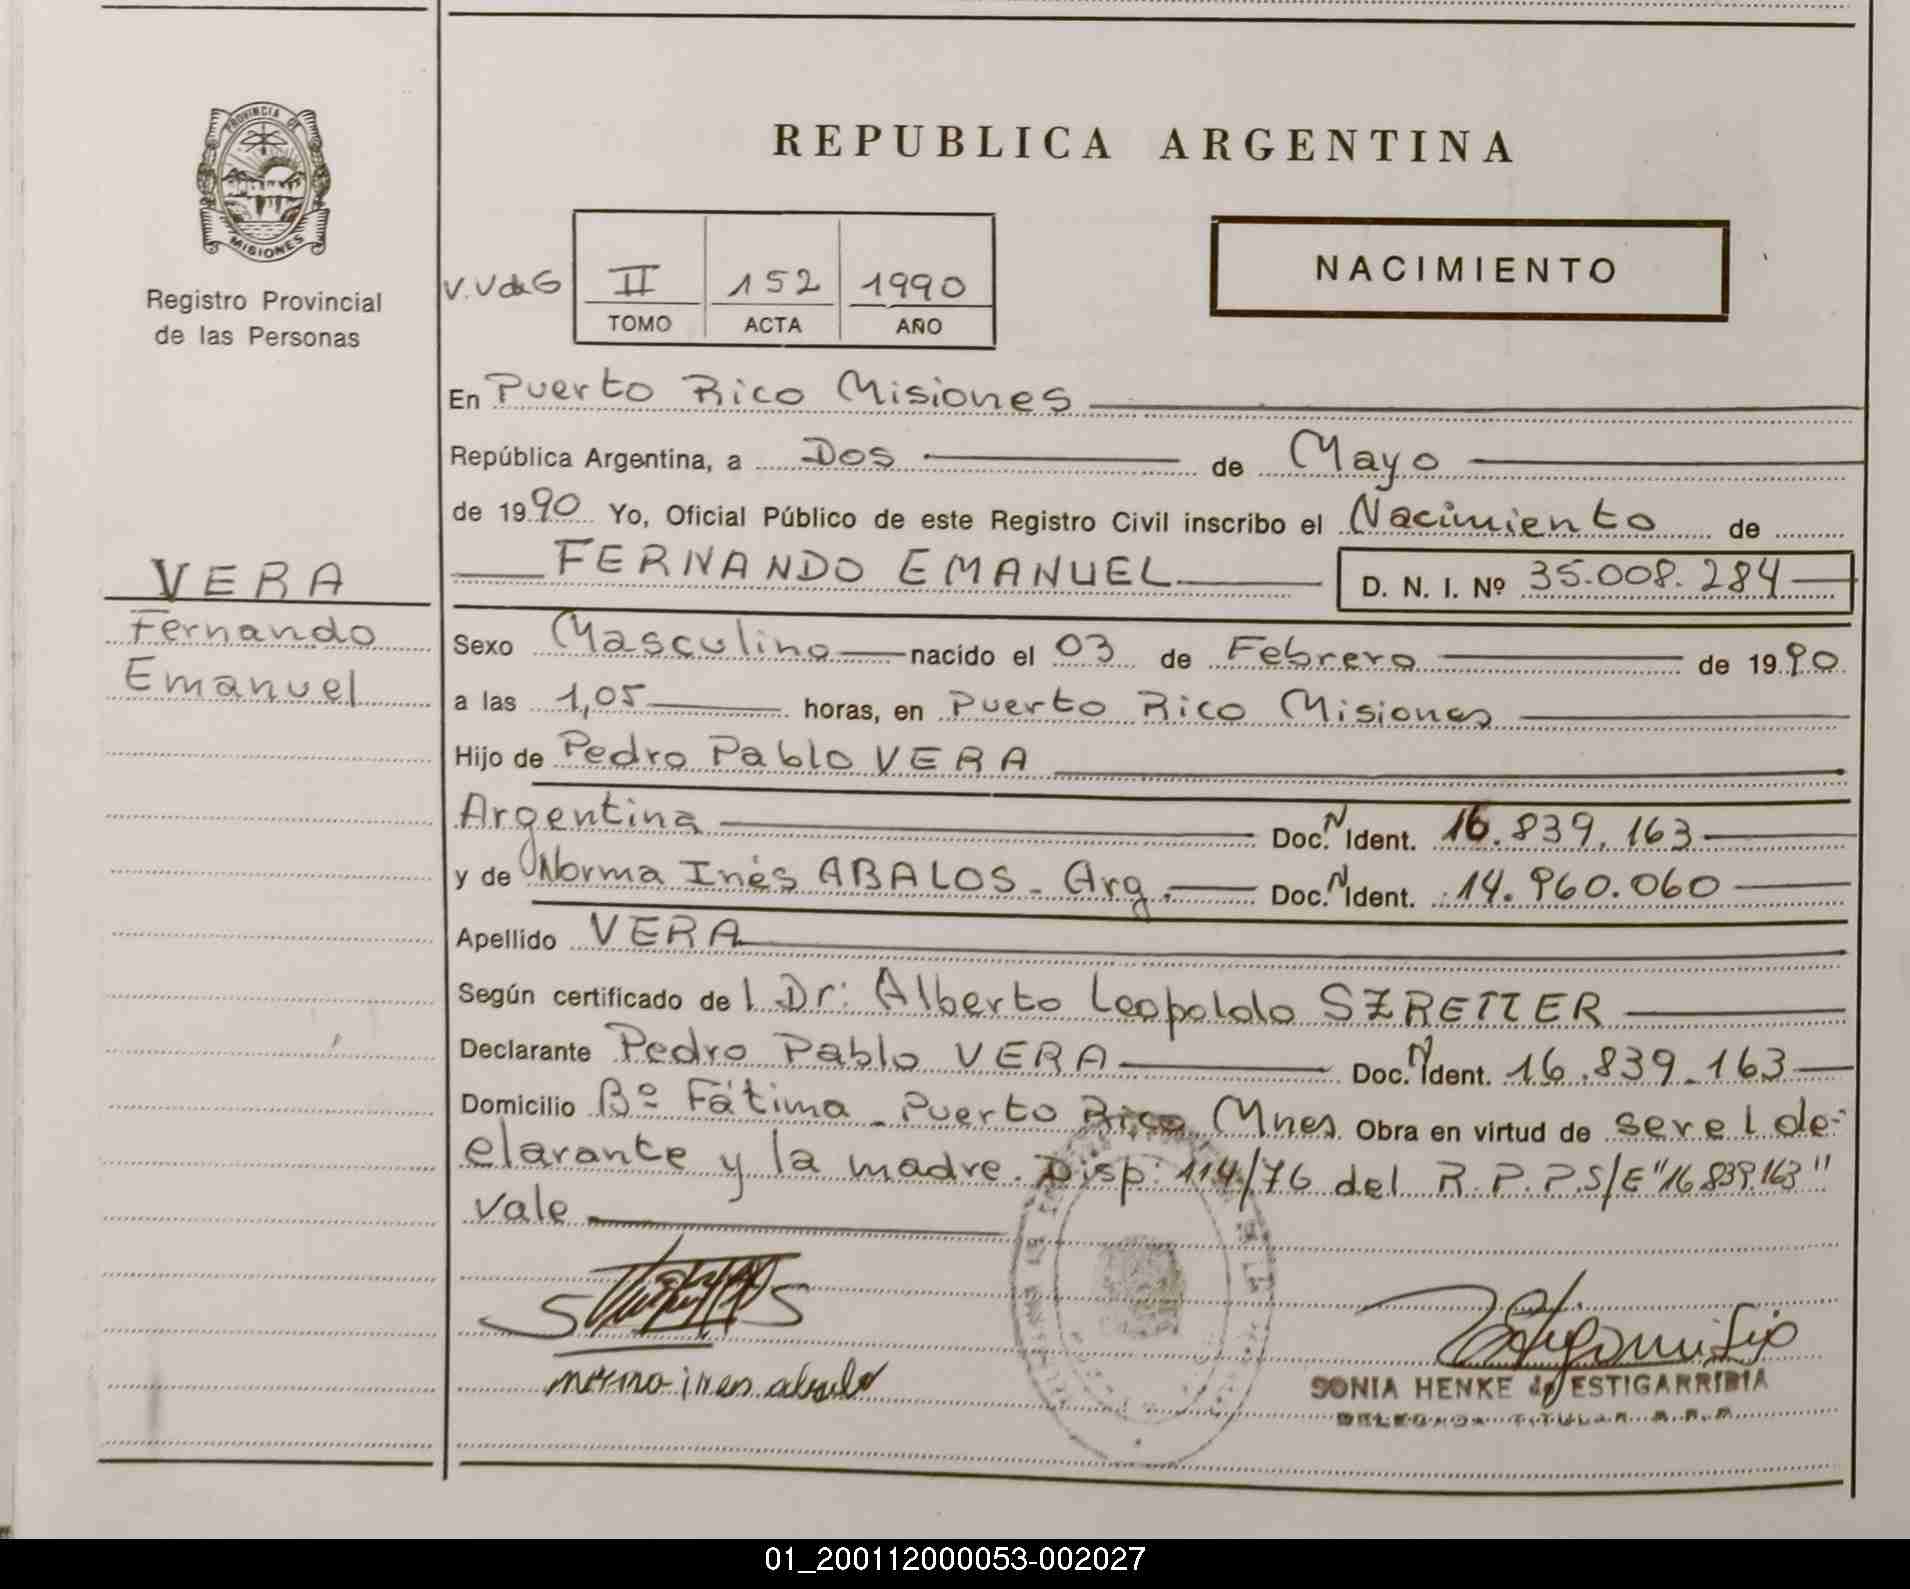 PROVINCIA DE
MISIONES
Registro Provincial
de las Personas
VERA
Fernando
Emanuel
REPUBLICA ARGENTINA
V.V de G II 152 1990
TOMO ACTA AÑO
NACIMIENTO
En Puerto Rico Misiones
República Argentina, a Dos de Mayo
de 1990 Yo, Oficial Público de este Registro Civil inscribo el Nacimiento de
FERNANDO EMANUEL D. N. I. Nº 35.008.284
Sexo Masculino nacido el 03 de Febrero de 1990
a las 1,05 horas, en Puerto Rico Misiones
Hijo de Pedro Pablo VERA
Argentina Doc. N Ident. 16.839.163
y de Norma Inés ABALOS - Arg. Doc. N Ident. 14.960.060
Apellido VERA
Según certificado del Dr: Alberto Leopoldo SZRETTER
Declarante Pedro Pablo VERA Doc. N Ident. 16.839.163
Domicilio Bº Fátima - Puerto Rico Mnes Obra en virtud de ser el de-
clarante y la madre. Disp: 114/76 del R.P.P. S/E "16.839.163"
vale
SONIA HENKE de ESTIGARRIBIA
DELEGADA TITULAR R.P.P.
01_200112000053-002027